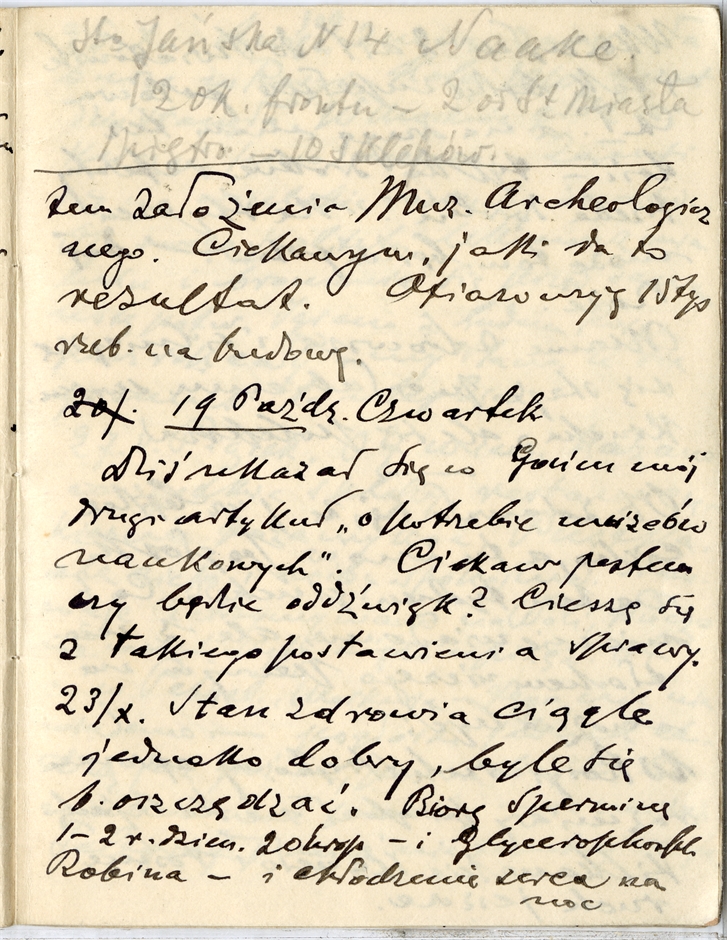 Sto Jańska N 14 Naake.
12 ok. frontu – 2 od St. Miasta
piętro – 10 sklepów.
tem założenia Muz. Archeologicz
nego. Ciekawym, jaki da to
rezultat. Ofiarowuję 15 tys
rub. na budowę.
20/. 19 Paźdz. Czwartek
Dziś ukazał się w Gońcu mój
drugi artykuł „o potrzebie muzeów
naukowych". Ciekaw jestem
czy będzie oddźwięk? Cieszę się
z takiego postawienia sprawy.
23/x. Stan zdrowia ciągle
jednako dobry, byle się
b. oszczędzać. Biorę Sperminę
1–2 r. dzien. 20 krop – i Glycerophosph
Robina – i chłodzenie serca na
noc